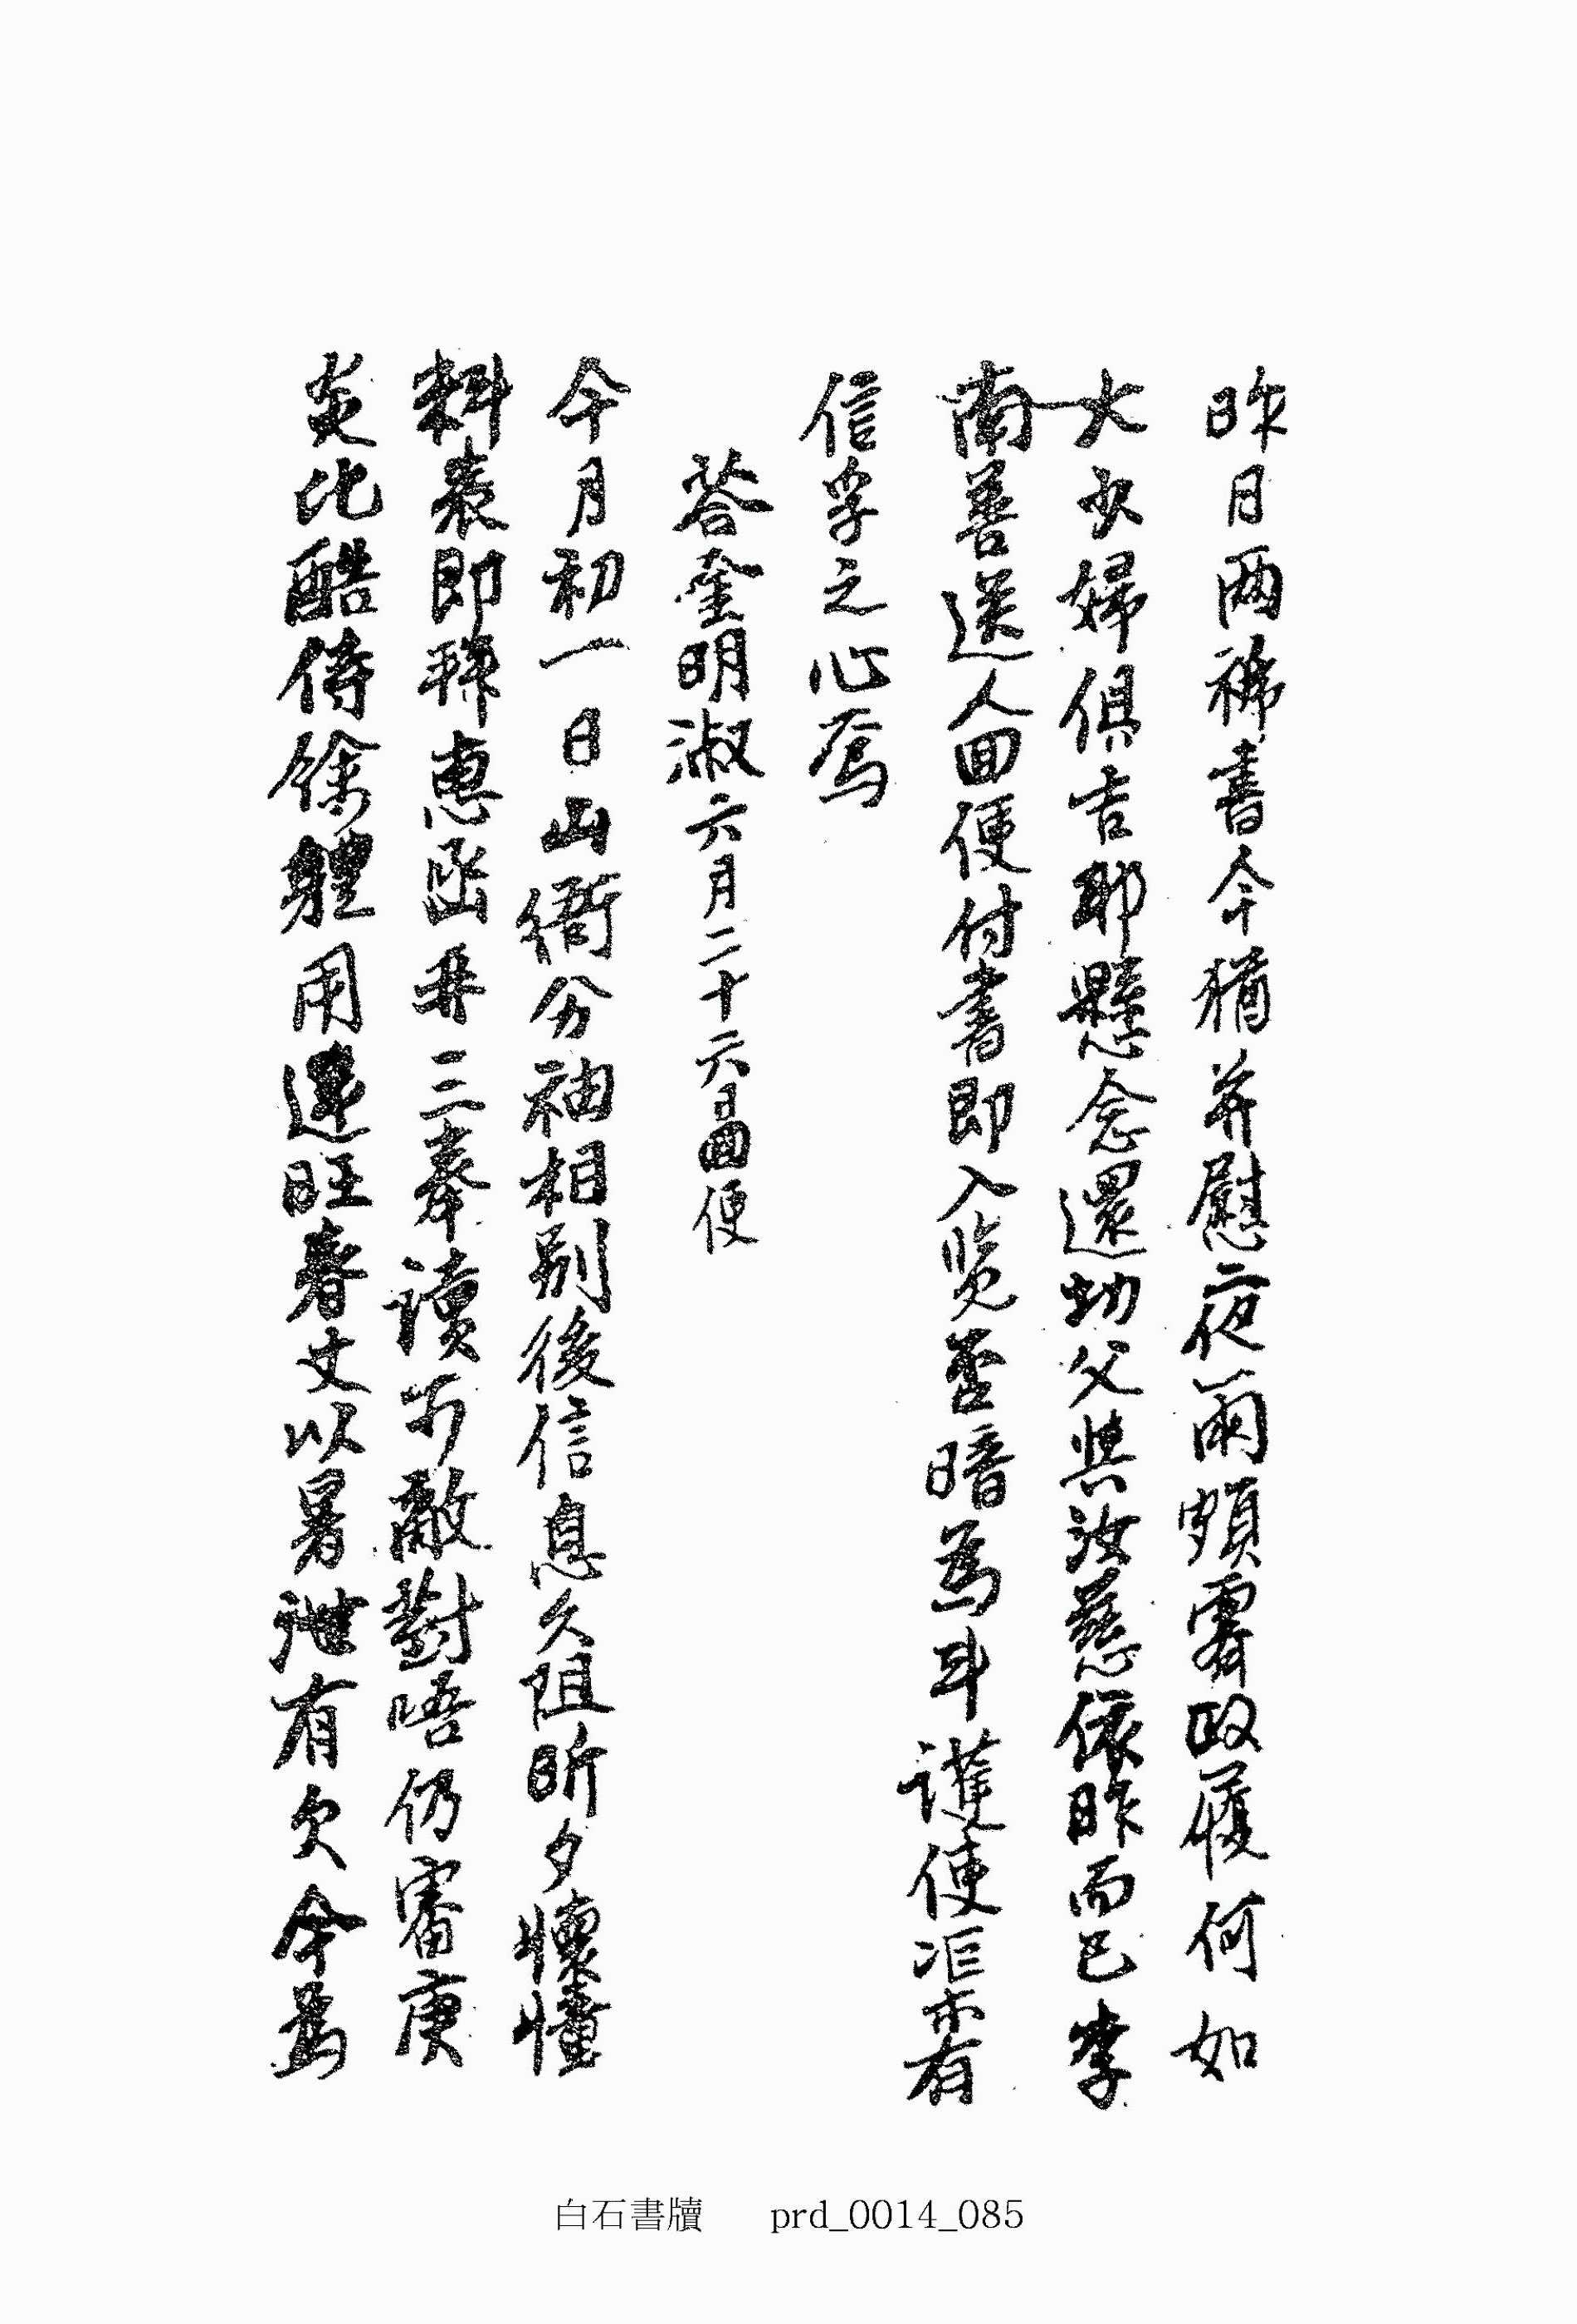 昨日兩拜書今猶並慰夜雨頗霽政履何如
大少婦俱吉耶懸念還切父與汝慈依昨而已李
南善送人回便付書即入覽否暗爲耳謹使派亦有
信孚之心焉
答奎明淑六月二十六日回便
今月初一日山衙分袖相別後信息久阻昕夕懷憧
料表即拜惠函再三奉讀可敵對唔仍審庚
炎比酷侍餘體用連旺春丈以暑泄有欠今爲
白石書牘 prd_0014_085